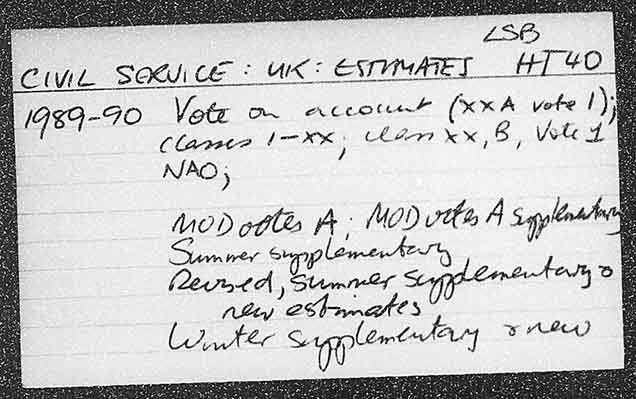 LSB
CIVIL SERVICE : UK : ESTIMATES HT40
1989-90 Vote on account (XXA vote 1);
Classes 1-XX; class XX, B, Vote 1
NAO;
MOD votes A; MOD votes A supplementary
Summer supplementary
Revised, summer supplementary &
new estimates
Winter supplementary & new